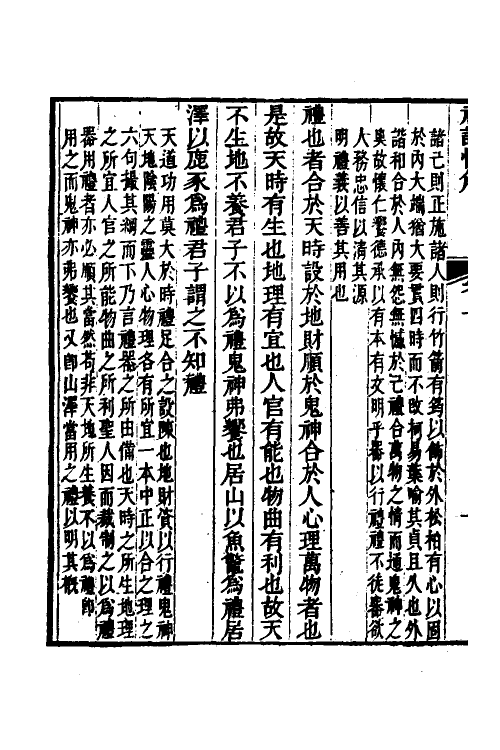 諸己則正施諸人則行竹箭有筠以飾於外松柏有心以固
於內大端猶大要貫四時而不改柯易葉喻其貞且久也外
諧和合於人內無怨無憾於己禮合萬物之情而通鬼神之
奧故懷仁饗德承以有本有文明乎器以行禮禮不徒器欲
人務忠信以清其源
明禮義以善其用也
禮也者合於天時設於地財順於鬼神合於人心理萬物者也
是故天時有生也地理有宜也人官有能也物曲有利也故天
不生地不養君子不以為禮鬼神弗饗也居山以魚鱉為禮居
澤以鹿豕為禮君子謂之不知禮
天道功用莫大於時禮足合之設陳也地財資以行禮鬼神
天地陰陽之靈人心物理各有所宜一本中正以合之理之
六句撮其綱而下乃言禮器之所由備也天時之所生地理
之所宜人官之所能物曲之所利聖人因而裁制之以為禮
器用禮者亦必順其當然苟非天地所生養不以為禮即
用之而鬼神亦弗饗也又即山澤當用之禮以明其概